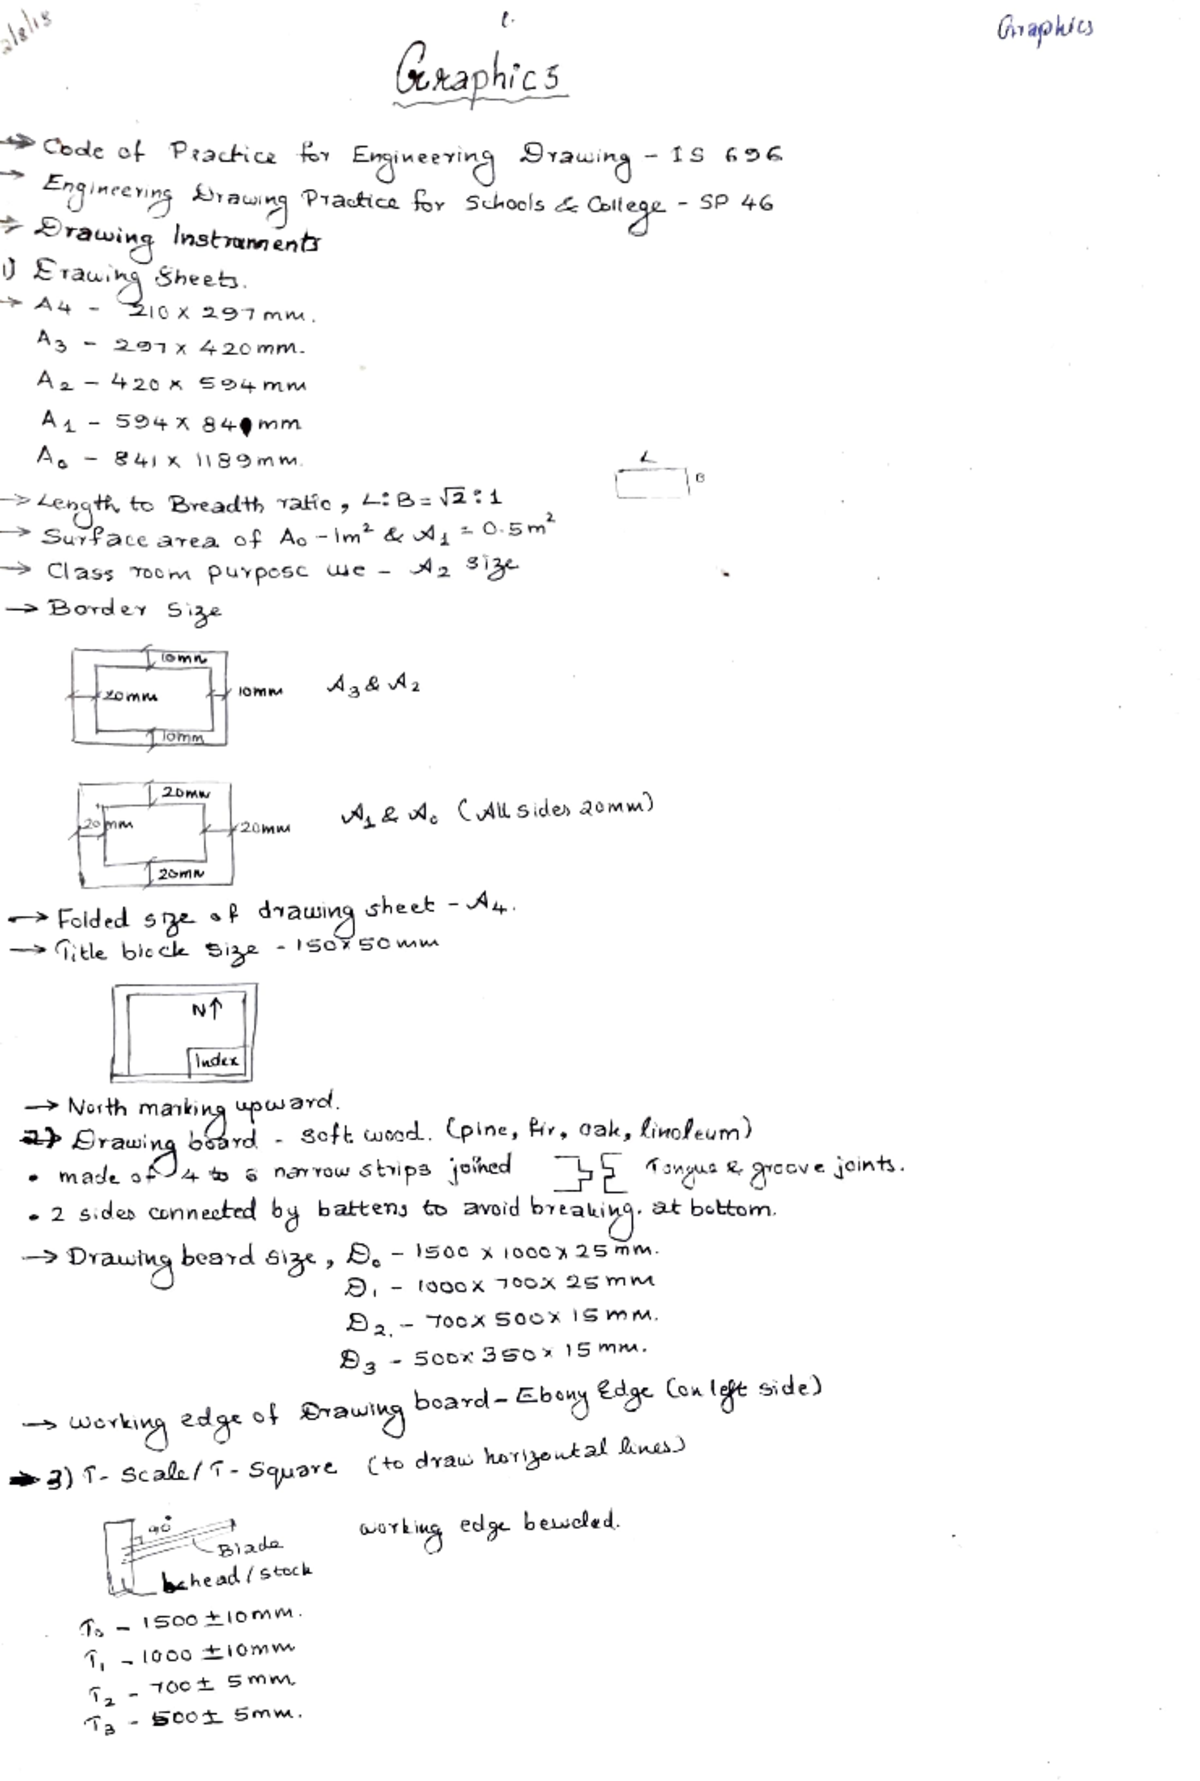 2/8/18
1.
Graphics
Graphics
→ Code of Practice for Engineering Drawing - IS 696
→ Engineering Drawing Practice for Schools & College - SP 46
→ Drawing Instruments
1) Drawing Sheets.
→ A4 - 210 x 297 mm.
A3 - 297 x 420 mm.
A2 - 420 x 594 mm
A1 - 594 x 84 mm
A0 - 841 x 1189 mm.
L
B
→ Length to Breadth ratio, L:B = √2 : 1
→ Surface area of A0 - 1m² & A1 = 0.5 m²
→ Class room purpose use - A2 size
→ Border Size
10mm
20mm
10mm
A3 & A2
10mm
20mm
20mm
20mm
A1 & A0 (All sides 20mm)
20mm
→ Folded size of drawing sheet - A4.
→ Title block size - 150 x 50 mm
N↑
Index
→ North marking upward.
2) Drawing board - soft wood. (pine, fir, oak, linoleum)
• made of 4 to 6 narrow strips joined Tongue & groove joints.
• 2 sides connected by battens to avoid breaking. at bottom.
→ Drawing board size, D0 - 1500 x 1000 x 25 mm.
D1 - 1000 x 700 x 25 mm
D2. - 700 x 500 x 15 mm.
D3 - 500 x 350 x 15 mm.
→ Working edge of Drawing board - Ebony Edge (on left side)
→ 3) T-Scale / T-Square (to draw horizontal lines)
90°
Blade
head/stock
working edge beveled.
T0 - 1500 ± 10mm.
T1 - 1000 ± 10mm
T2 - 700 ± 5mm
T3 - 500 ± 5mm.